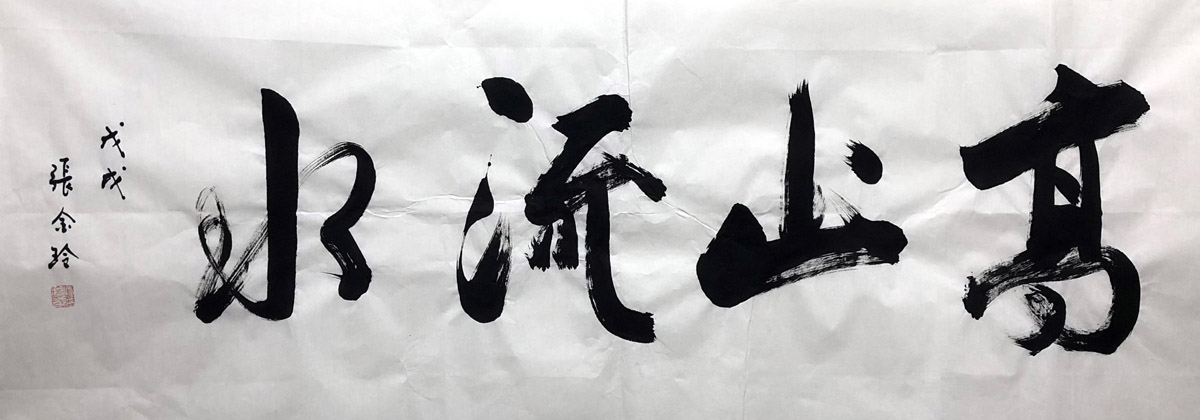 高山流水
戊戌
張金玲